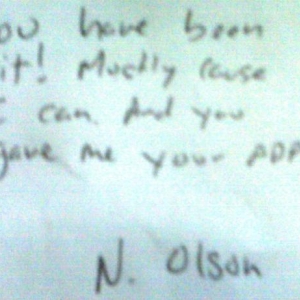 ou have been
it! Mostly cause
I can. And you
gave me your ADD
N. Olson